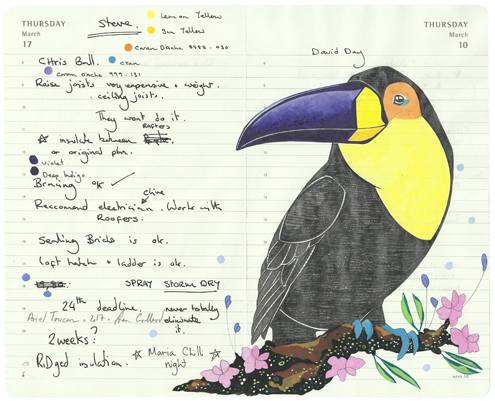 THURSDAY
March
17
Steve.
Lemon Yellow
Sun Yellow
Caran D'Ache 9998 - 030
Chris Ball.
cyan
caran d'ache 999 - 131
Raise joists very expensive + weight.
ceiling joists.
They want do it.
Rafters
☆ insulate between
or original plan.
Violet
Deep Indigo
Browing OK ✓
Clive
Reccomend electrician. Work with
Roofers.
Sealing Bricks is ok.
loft hatch + ladder is ok.
SPRAY STORM DRY
24th deadline.
never totally
Ariel Toucan - 2017 -
eliminate
it.
2 weeks?
RiDged insulation.
☆ Maria Chilli ☆
night
THURSDAY
March
10
David Day